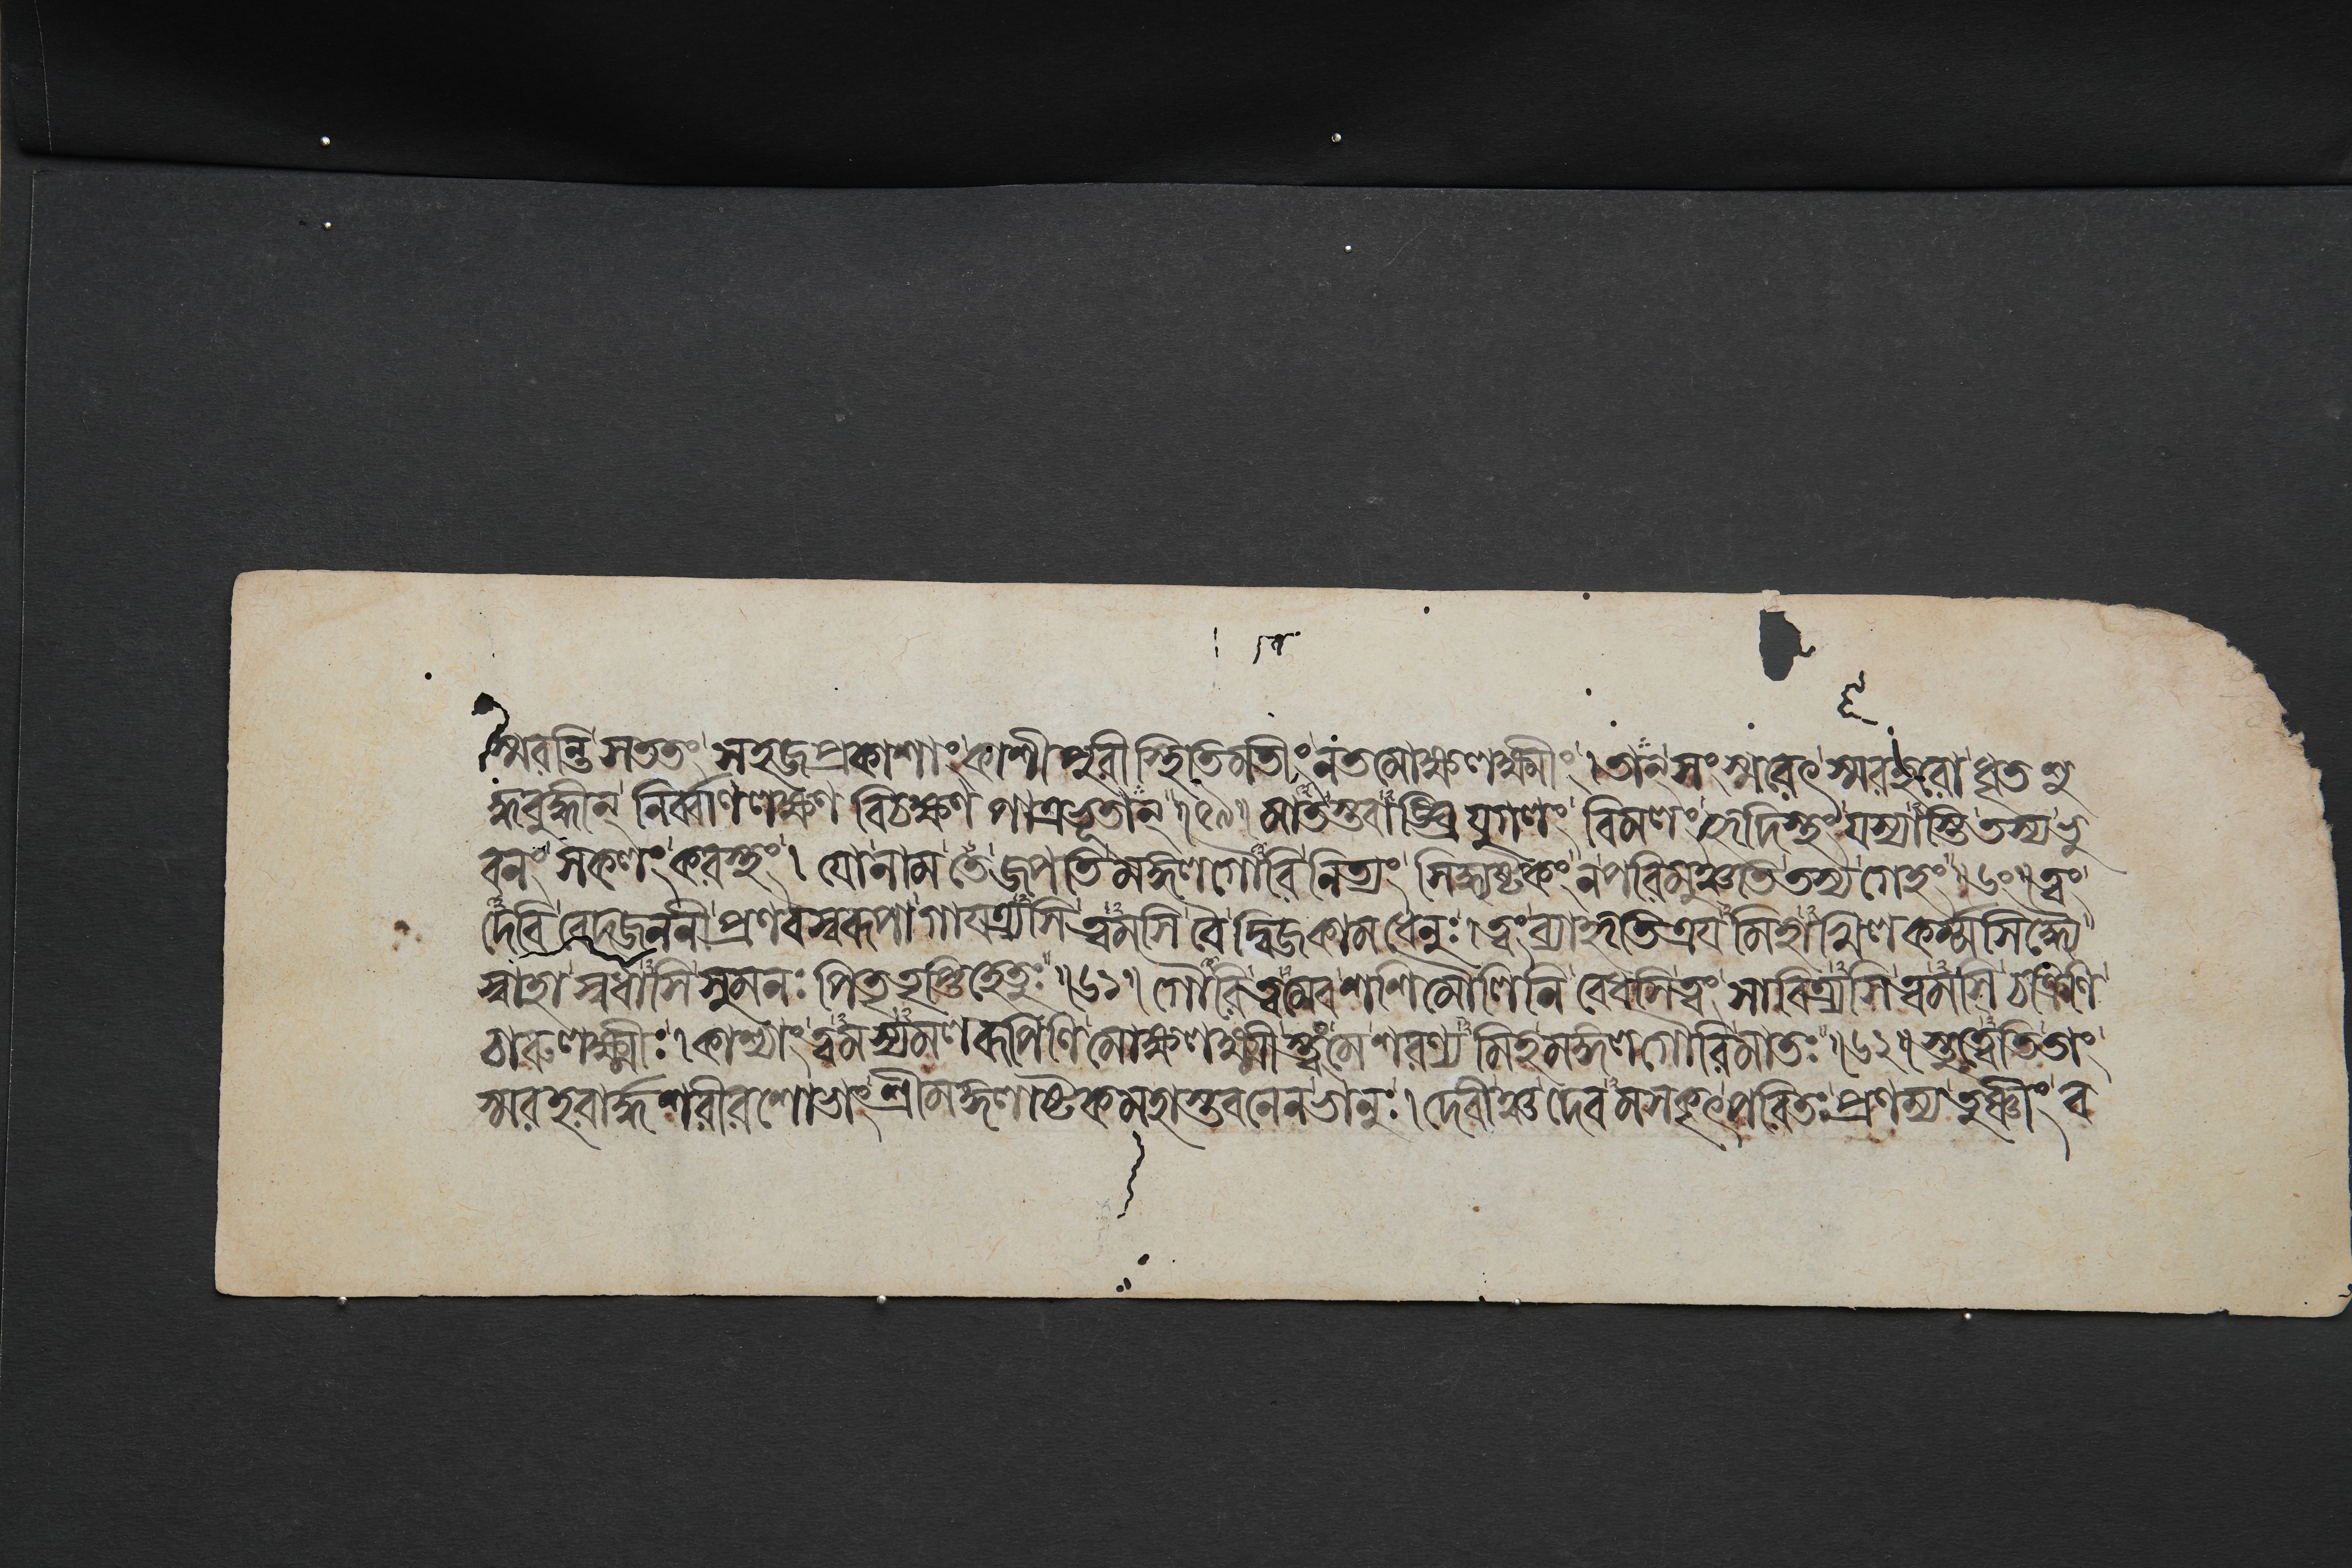 স্মরন্তি সততং সহজপ্রকাশাং কাশীপুরীস্থিতিমতীং নতমোক্ষলক্ষ্মীং । তান্ সংস্মরেৎ স্মরহরো ধৃতশু
দ্ধবুদ্ধীন্ নির্ব্বাণলক্ষণ বিচক্ষণ পাত্রভূতান্ ॥ ৫৯ ॥ মাতস্তবাঙ্ঘ্রিযুগলং বিমলং হৃদিস্থং যস্যাস্তি তস্য ভু
বনং সকলং করস্থং । যো নাম তে জপতি মঙ্গলগৌরি নিত্যং সিদ্ধ্যষ্টকং ন পরিমুঞ্চতি তস্য গেহং ॥ ৬০ ॥ ত্বং
দেবি বেদজননী প্রণবস্বরূপা গাযত্র্যসি ত্বমসি বৈ দ্বিজকামধেনুঃ । ত্বং ব্যাহৃতিত্রযমিহাখিলকর্ম্মসিদ্ধ্যৈ
স্বাহা স্বধাসি সুমনঃ পিতৃতৃপ্তিহেতুঃ ॥ ৬১ ॥ গৌরি ত্বমেব শশিমৌলিনি বেধসি ত্বং সাবিত্র্যসি ত্বমসি চক্রিণি
চারুলক্ষ্মীঃ । কাশ্যাং ত্বমস্যমলরূপিণি মোক্ষলক্ষ্মীস্ত্বং মে শরণ্যমিহ মঙ্গলগৌরি মাতঃ ॥ ৬২ ॥ স্তুত্বেতি তাং
স্মরহরার্দ্ধশরীরশোভাং শ্রীমঙ্গলাষ্টকমহাস্তবনেন ভানুঃ । দেবীঞ্চ দেবমসকৃৎ পরিতঃ প্রণম্য তুষ্ণীং ব